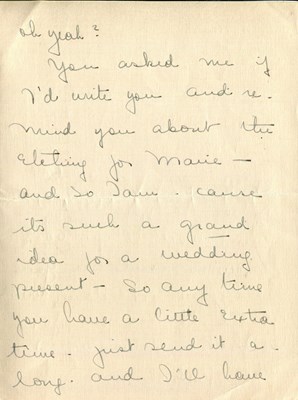 oh yeah?
You asked me if
I'd write you and re-
mind you about the
Etching for Marie -
and so I am. cause
its such a grand
idea for a wedding
present - So any time
you have a little Extra
time. just send it a-
long. and I'll have